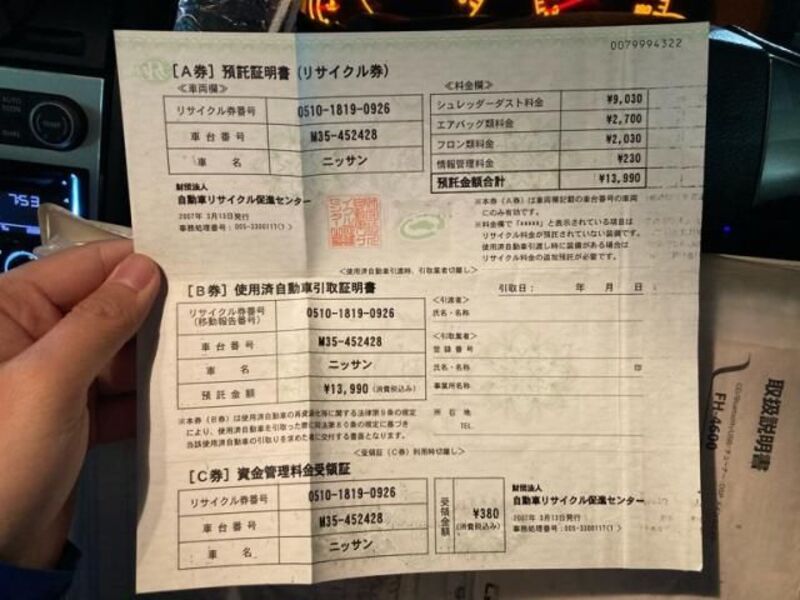 0079994322
[A券] 預託証明書 (リサイクル券)
≪車両欄≫
リサイクル券番号 0510-1819-0926
車台番号 M35-452428
車 名 ニッサン
≪料金欄≫
シュレッダーダスト料金 ¥9,030
エアバッグ類料金 ¥2,700
フロン類料金 ¥2,030
情報管理料金 ¥230
預託金額合計 ¥13,990
財団法人
自動車リサイクル促進センター
2007年 3月13日発行
事務処理番号:005-3300117(1 )
※本券(A券)は車両欄記載の車台番号の車両
にのみ有効です。
※料金欄で「*****」と表示されている項目は
リサイクル料金が預託されていない装備です。
使用済自動車引渡し時に装備がある場合は
リサイクル料金の追加預託が必要です。
<使用済自動車引渡時、引取業者切離し>
[B券] 使用済自動車引取証明書
引取日: 年 月 日
リサイクル券番号
(移動報告番号) 0510-1819-0926
車台番号 M35-452428
車 名 ニッサン
預託金額 ¥13,990 (消費税込み)
<引渡者>
氏名・名称
<引取業者>
登録番号
氏名・名称 印
事業所名称
所在地
TEL.
※本券(B券)は使用済自動車の再資源化等に関する法律第9条の規定
により、使用済自動車を引取った際に同法第80条の規定に基づき
当該使用済自動車の引取りを求めた者に交付する書面となります。
<受領証(C券)利用時切離し>
[C券] 資金管理料金受領証
リサイクル券番号 0510-1819-0926
車台番号 M35-452428
車 名 ニッサン
受領金額 ¥380
(消費税込み)
財団法人
自動車リサイクル促進センター
2007年 3月13日発行
事務処理番号:005-3300117(1 )
取扱説明書
FH-4600
753
AUTO